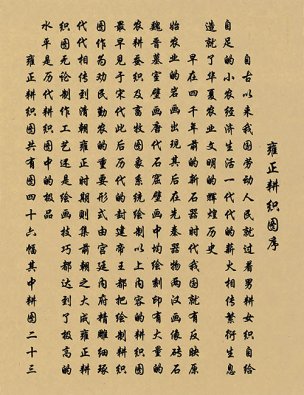 雍正耕织图序
自古以来我国劳动人民就过着男耕女织自给
自足的小农经济生活一代代的薪火相传繁衍生息
造就了华夏农业文明的辉煌历史
早在四千年前的新石器时代我国就有反映原
始农业的岩画出现其后在先秦器物两汉画像砖石
魏晋墓室壁画唐代石窟壁画中均绘刻印有大量的
农耕蚕织及畜牧图象系统绘制以上内容的耕织图
最早见于宋代此后历代的封建帝王都把绘制耕织
图作为劝民勤农的重要形式由宫廷内府精雕细琢
代代相传到清朝雍正时期则集前朝之大成雍正耕
织图无论制作工艺还是绘画技巧都达到了极高的
水平是历代耕织图中的极品
雍正耕织图共有图四十六幅其中耕图二十三